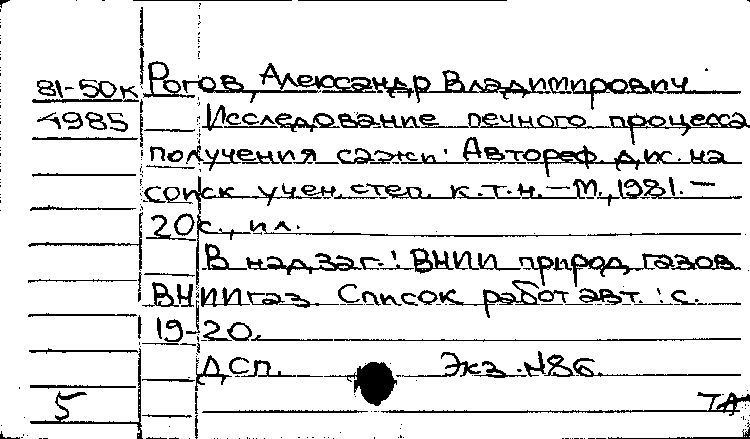 81-50к Рогов, Александр Владимирович
4985 Исследование печного процесса
получения сажи: Автореф. дис. на
соиск учен. степ. к.т.н. – М., 1981. –
20 с., ил.
В надзаг.: ВНИИ природ. газов
ВНИИгаз. Список работ авт.: с.
19-20.
ДСП. Экз. №86.
5 ТА